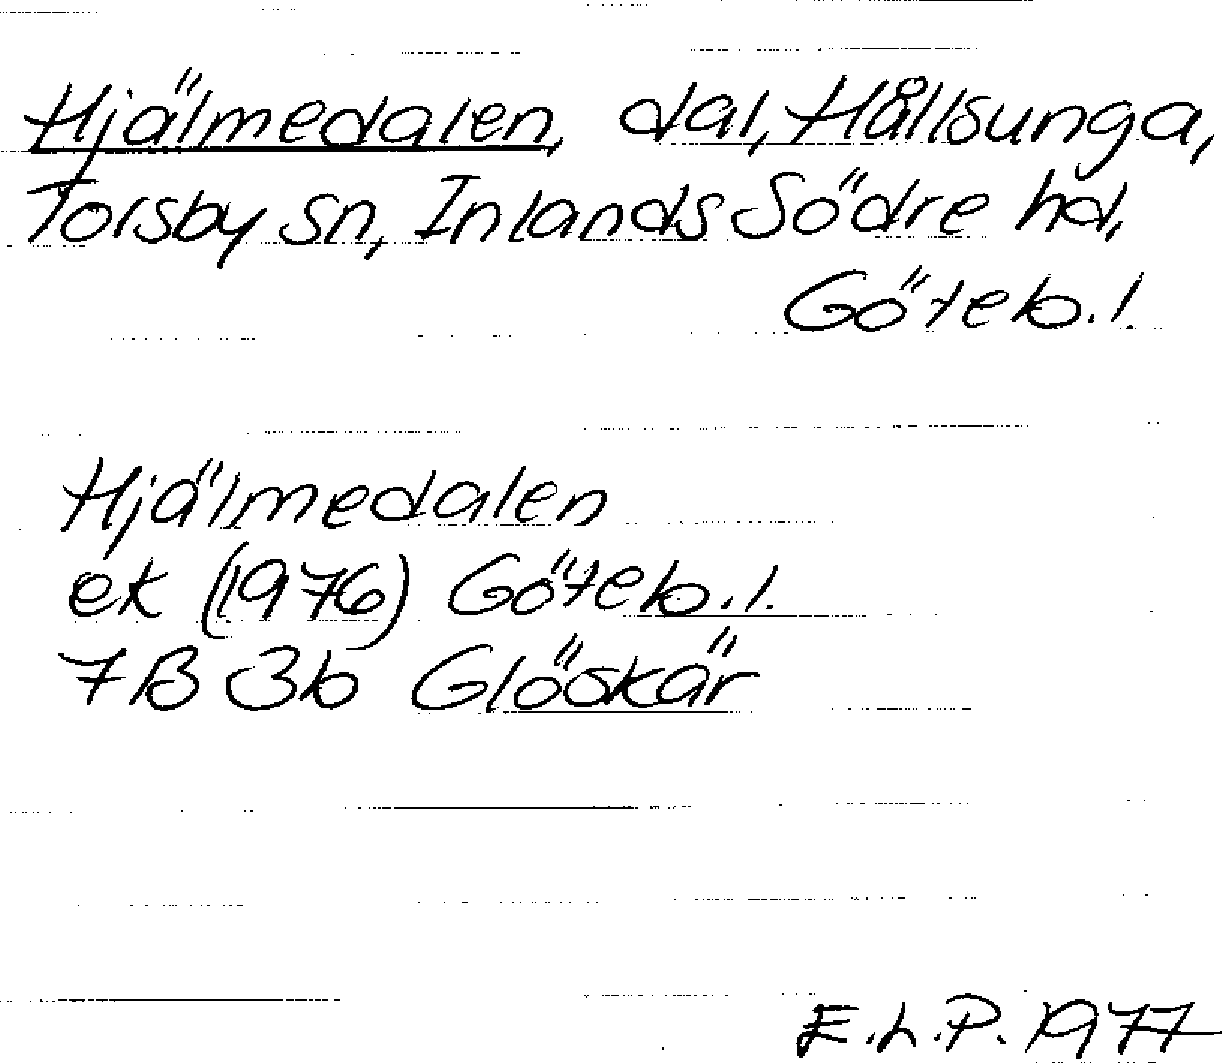 Hjälmedalen, dal, Hållsunga,
Torsby sn, Inlands Södre hd,
Göteb.l.
Hjälmedalen
ek (1976) Göteb.l.
7B 3b Glöskär
E.L.P. 1977